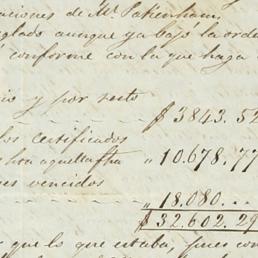 aciones de Mr. Pakenham,
glado aunque ya bajó la orde
conforme con la que haga
io y por resto $ 3843.52
los certificados
hta aquella fha " 10.678.77
es vencidos
" 18.080...
$ 32.602.29
que lo que estaba, pues con